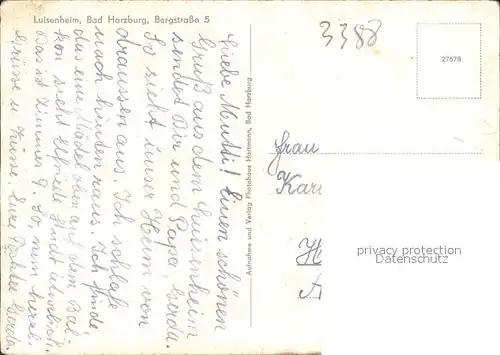 Luisenheim, Bad Harzburg, Bergstraße 5
3388
27678
Liebe Mutti! Einen schönen
Gruß aus dem Luisenheim
sendet Dir und Papa, Gerda.
So sieht unser Heim von
draussen aus. Ich schlafe
nach hinten raus. Ich finde
das eine Mädel oben auf dem Bal-
kon sieht Elfriede Hundt ähnlich.
Das ist Zimmer 9. So, nun herzl.
Grüsse u. Küsse, Eure Gerda.
Aufnahme und Verlag Photohaus Hartmann, Bad Harzburg
Frau
privacy protection
@ ansichtskarten-lexikon.de